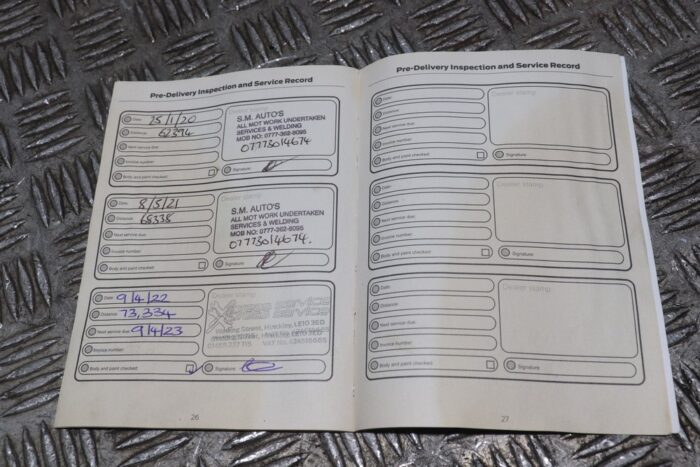 Pre-Delivery Inspection and Service Record
Date: 25/1/20
Distance: 62394
Next service due:
Invoice number:
Body and paint checked:
Dealer stamp
S.M. AUTO'S
ALL MOT WORK UNDERTAKEN
SERVICES & WELDING
MOB NO: 0777-362-8095
07773014674
Signature:
Date: 8/5/21
Distance: 68338
Next service due:
Invoice number:
Body and paint checked:
Dealer stamp
S.M. AUTO'S
ALL MOT WORK UNDERTAKEN
SERVICES & WELDING
MOB NO: 0777-362-8095
07773014674.
Signature:
Date: 9/4/22
Distance: 73,334
Next service due: 9/4/23
Invoice number:
Body and paint checked:
Dealer stamp
Service
Street, Hinckley, LE10 3EG
VAT No.
Signature:
26
Pre-Delivery Inspection and Service Record
Date:
Distance:
Next service due:
Invoice number:
Body and paint checked:
Dealer stamp
Signature:
Date:
Distance:
Next service due:
Invoice number:
Body and paint checked:
Dealer stamp
Signature:
Date:
Distance:
Next service due:
Invoice number:
Body and paint checked:
Dealer stamp
Signature:
27